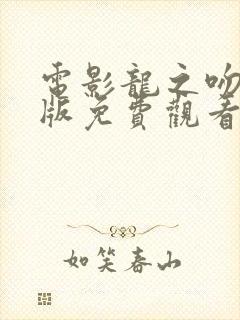 電影龍之吻
版免費觀看
如笑春山